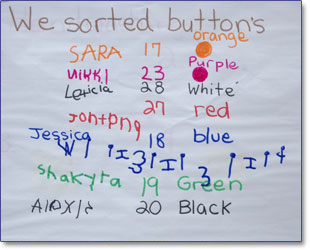 We sorted button's
SARA 17 orange
NIKKI 23 Purple
Leticia 28 White
27 red
Jessica 18 blue
shakyra 19 Green
20 Black